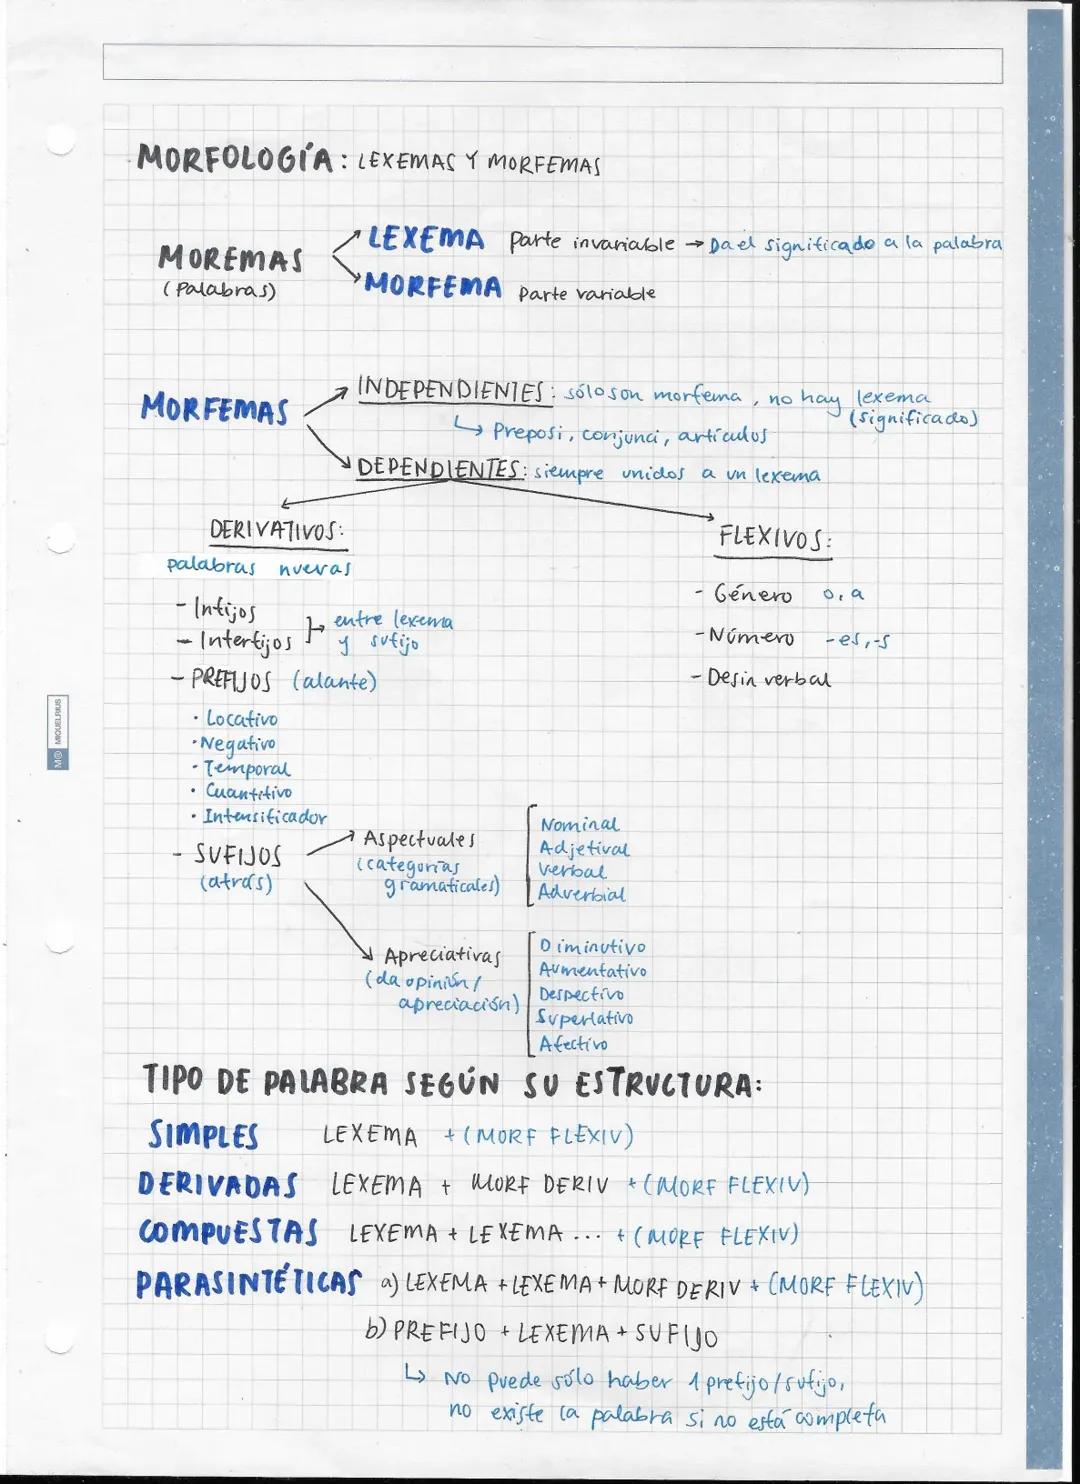 MORFOLOGÍA: LEXEMAS Y MORFEMAS
LEXEMA parte invariable → Da el significado a la palabra
MOREMAS
(Palabras)
MORFEMA parte variable
INDEPENDIENTES: sólo son morfema, no hay lexema
(significado)
MORFEMAS
↳ Preposi, conjunci, artículos
DEPENDIENTES: siempre unidos a un lexema
DERIVATIVOS:
palabras nuevas
- Infijos
- Interfijos
entre lexema
y sufijo
- PREFIJOS (alante)
· Locativo
· Negativo
· Temporal
· Cuantitivo
· Intensificador
- SUFIJOS
(atrás)
Aspectuales
(categorías
gramaticales)
Nominal
Adjetival
Verbal
Adverbial
Apreciativas
(da opinión/
apreciación)
Diminutivo
Aumentativo
Despectivo
Superlativo
Afectivo
FLEXIVOS:
- Género o, a
- Número -es, -s
- Desin verbal
TIPO DE PALABRA SEGÚN SU ESTRUCTURA:
SIMPLES LEXEMA + (MORF FLEXIV)
DERIVADAS LEXEMA + MORF DERIV + (MORF FLEXIV)
COMPUESTAS LEXEMA + LEXEMA ... + (MORF FLEXIV)
PARASINTÉTICAS a) LEXEMA + LEXEMA + MORF DERIV + (MORF FLEXIV)
b) PREFIJO + LEXEMA + SUFIJO
↳ No puede sólo haber 1 prefijo/sufijo,
no existe la palabra si no está completa
MIQUELRIUS